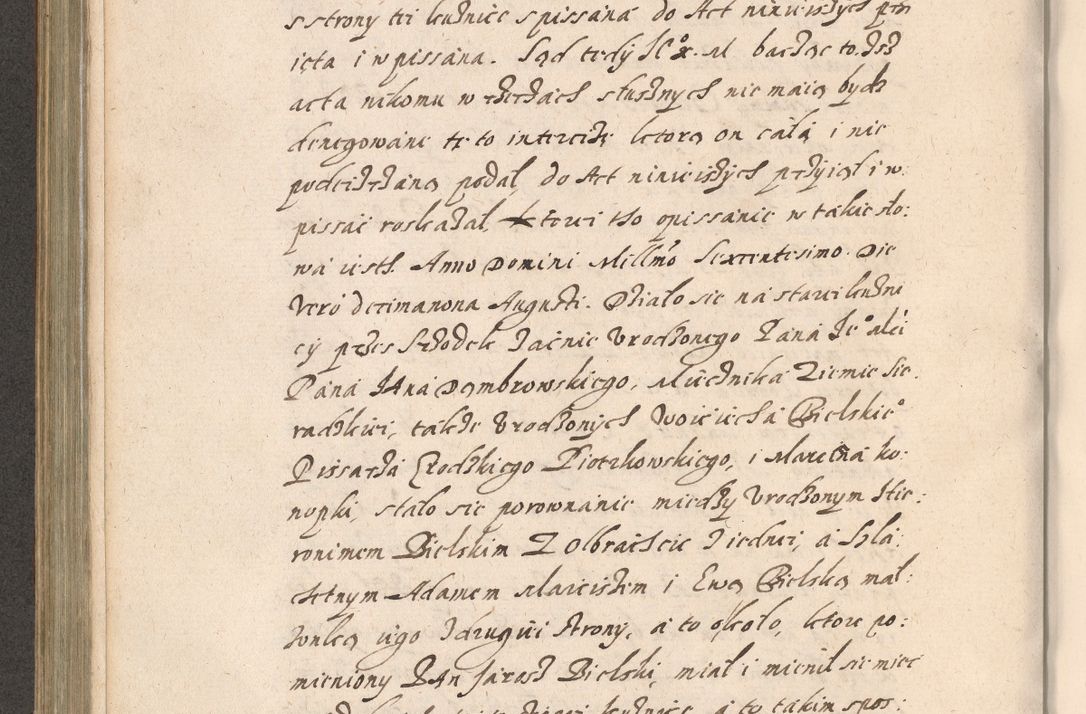 s strony tei kuźnice spissana do Act ninieiszych prz
ięta i wpissana. Sąd tedy JE˚X. M bacząc to, żes
acta nikomu w rzeczach słusznych nie maią bydz
denegowane te to intercizę ktorą on całą i nie
podeirzaną podał, do Act ninieiszych przyiął i w
pissać roskazał, ktorei tho opissanie w takie sło:
wa iesth. Anno Domini Millmo Sexcentesimo. Die
Vero decimanona Augusti. Działo sie na starei kuźni
cy przes srzodek Jaśnie Urodzonego Pana Je˚mści
Pana Jana Dąmbrowskiego, Miecznika Ziemie Sie
radzkiei, także Urodzonych Woiciecha Bielskie˚
Pissarza Grodzkiego Piotrkowskiego, i Marcina ko:
nopki, stało sie porownanie miedzy Urodzonym Hie:
ronimem Bielskim Z Olbrachcic Z iednei, a Szla:
chetnym Adamem Marciszem i Ewą Bielską mał:
żonką iego Z drugiei strony, a to około, ktore po:
mieniony Pan Jarosz Bielski, miał i mienił sie miec
kuźnice, a to takim spos: